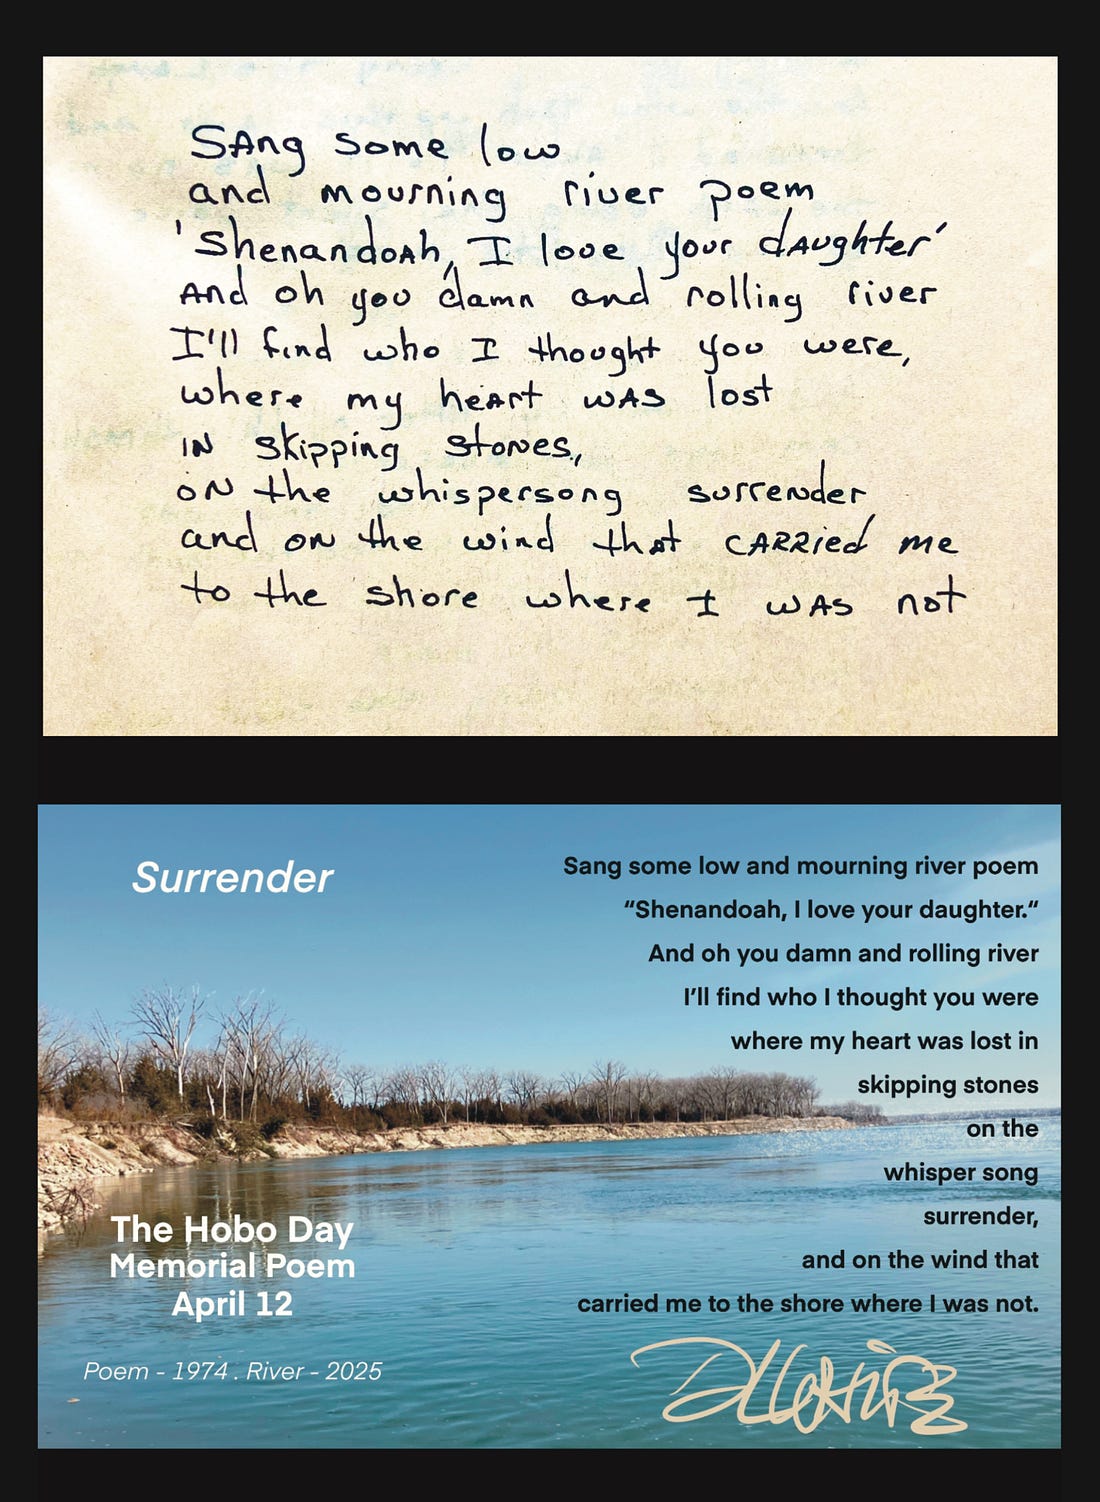 SAng some low
and mourning river poem
'ShenandoAh, I love your dAughter'
And oh you damn and rolling river
I'll find who I thought you were,
where my heArt wAS lost
IN skipping stones,
oN the whispersong surrender
and oN the wind that CARRied me
to the shore where I wAS not
Surrender
Sang some low and mourning river poem
“Shenandoah, I love your daughter.“
And oh you damn and rolling river
I’ll find who I thought you were
where my heart was lost in
skipping stones
on the
whisper song
surrender,
and on the wind that
carried me to the shore where I was not.
The Hobo Day
Memorial Poem
April 12
Poem - 1974 . River - 2025